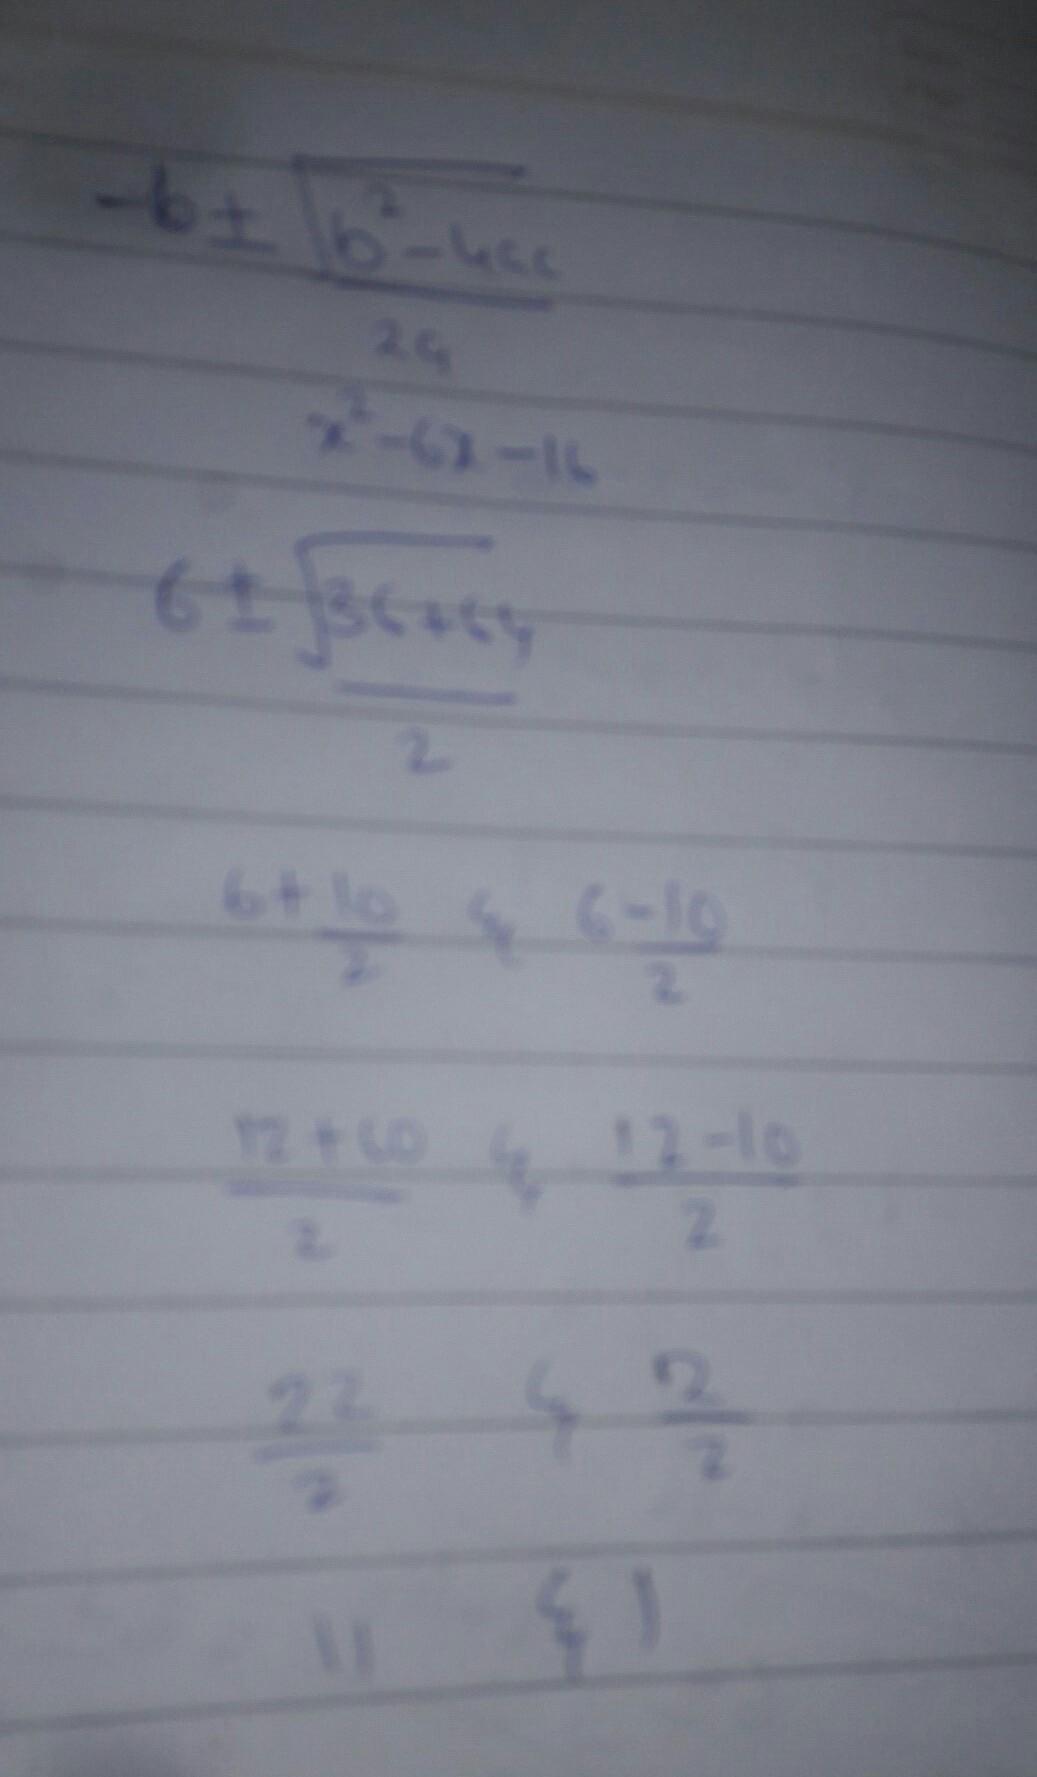 -b ± √b² - 4ac
2a
x² - 6x - 16
6 ± √36 + 64
2
6 + 10/2 & 6 - 10/2
12 + 10/2 & 12 - 10/2
22/2 & 2/2
11 & 1